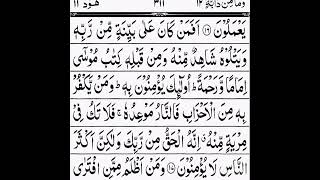 وما من دآبة ١٢ ٣١١ هود ١١
يَعْمَلُوْنَ ﴿١٦﴾ اَفَمَنْ كَانَ عَلٰى بَيِّنَةٍ مِّنْ رَّبِّهٖ
وَيَتْلُوْهُ شَاهِدٌ مِّنْهُ وَمِنْ قَبْلِهٖ كِتٰبُ مُوْسٰٓى
اِمَامًا وَّرَحْمَةً ؕ اُولٰٓئِكَ يُؤْمِنُوْنَ بِهٖ ؕ وَمَنْ يَّكْفُرْ
بِهٖ مِنَ الْاَحْزَابِ فَالنَّارُ مَوْعِدُهٗ ۚ فَلَا تَكُ فِيْ
مِرْيَةٍ مِّنْهُ ۗ اِنَّهُ الْحَقُّ مِنْ رَّبِّكَ وَلٰكِنَّ اَكْثَرَ
النَّاسِ لَا يُؤْمِنُوْنَ ﴿١٧﴾ وَمَنْ اَظْلَمُ مِمَّنِ افْتَرٰى